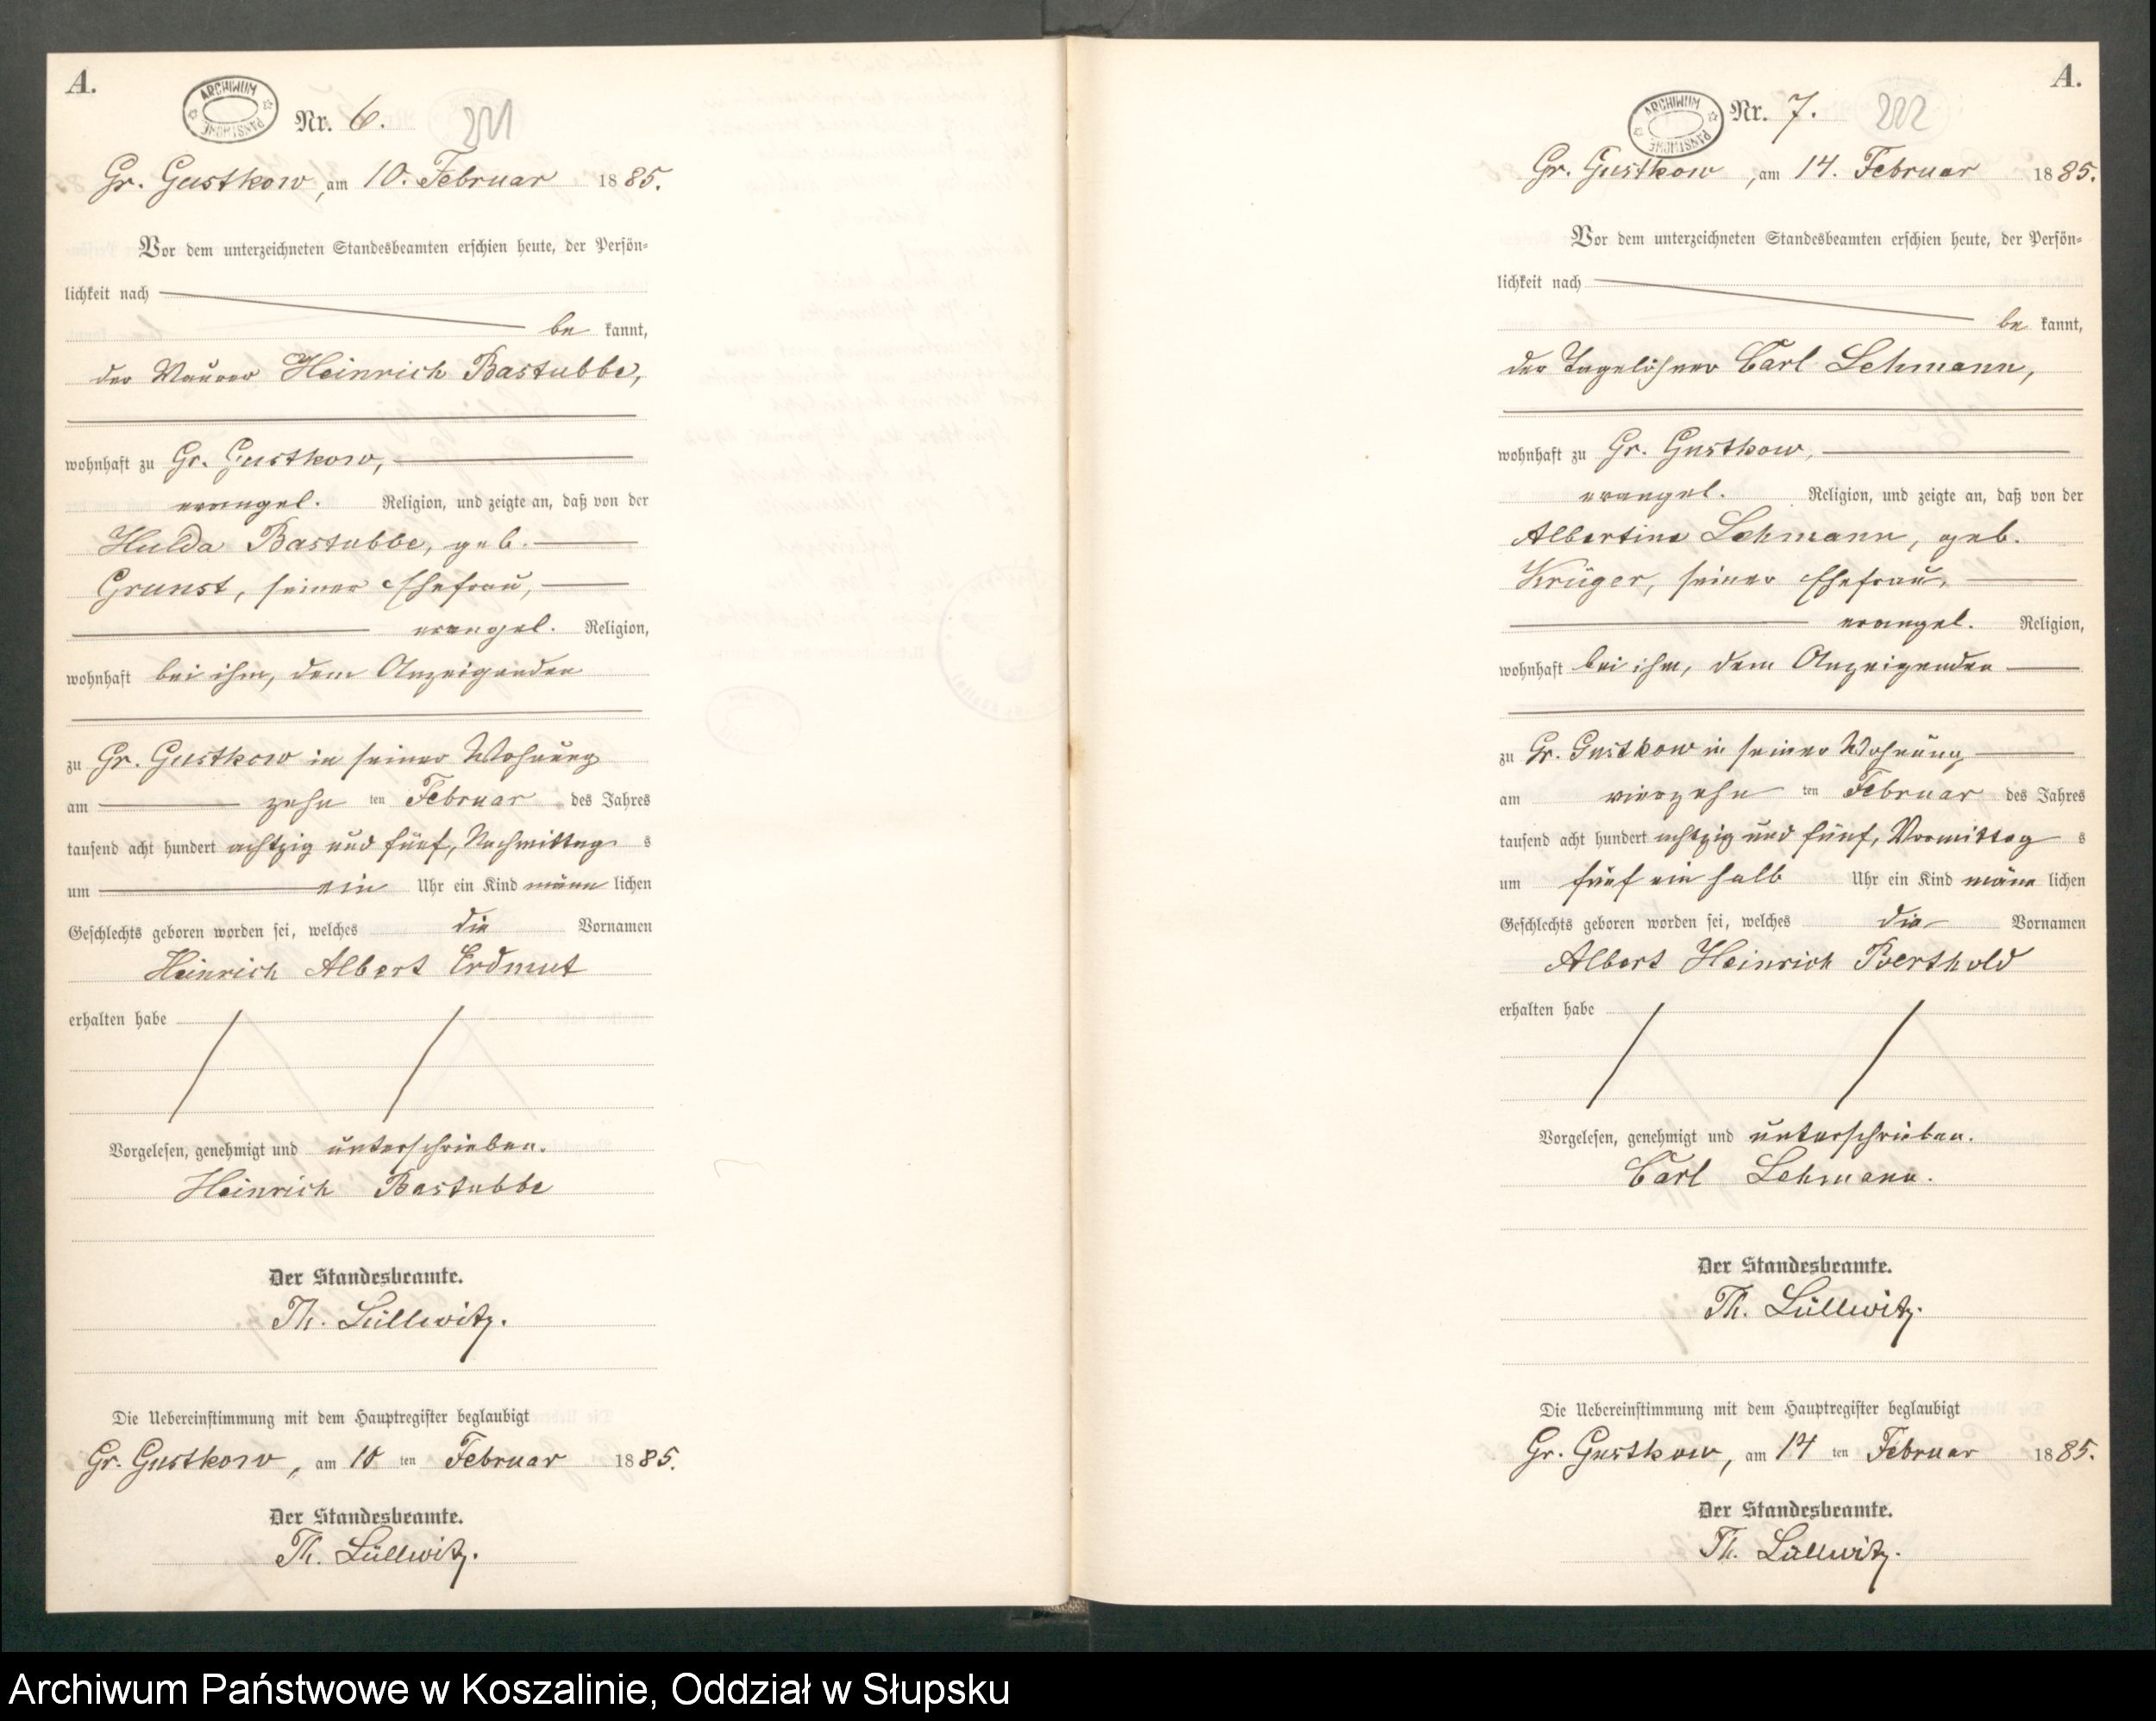 A.
ARCHIWUM PAŃSTWOWE
Nr. 6. 201
Gr. Gustkow, am 10. Februar 1885.
Vor dem unterzeichneten Standesbeamten erschien heute, der Persön-
lichkeit nach
be kannt,
der Maurer Heinrich Bastubbe,
wohnhaft zu Gr. Gustkow,
evangel. Religion, und zeigte an, daß von der
Hulda Bastubbe, geb.
Grunst, seiner Ehefrau,
evangel. Religion,
wohnhaft bei ihm, dem Anzeigenden
zu Gr. Gustkow in seiner Wohnung
am zehn ten Februar des Jahres
tausend acht hundert achtzig und fünf, Nachmittag s
um ein Uhr ein Kind männ lichen
Geschlechts geboren worden sei, welches die Vornamen
Heinrich Albert Erdmut
erhalten habe
Vorgelesen, genehmigt und unterschrieben.
Heinrich Bastubbe
Der Standesbeamte.
Th. Lüllwitz.
Die Uebereinstimmung mit dem Hauptregister beglaubigt
Gr. Gustkow, am 10 ten Februar 1885.
Der Standesbeamte.
Th. Lüllwitz.
A.
ARCHIWUM PAŃSTWOWE
Nr. 7. 202
Gr. Gustkow, am 14. Februar 1885.
Vor dem unterzeichneten Standesbeamten erschien heute, der Persön-
lichkeit nach
be kannt,
der Tagelöhner Carl Lehmann,
wohnhaft zu Gr. Gustkow,
evangel. Religion, und zeigte an, daß von der
Albertine Lehmann, geb.
Krüger, seiner Ehefrau,
evangel. Religion,
wohnhaft bei ihm, dem Anzeigenden
zu Gr. Gustkow in seiner Wohnung
am vierzehn ten Februar des Jahres
tausend acht hundert achtzig und fünf, Vormittag s
um fünf ein halb Uhr ein Kind männ lichen
Geschlechts geboren worden sei, welches die Vornamen
Albert Heinrich Berthold
erhalten habe
Vorgelesen, genehmigt und unterschrieben.
Carl Lehmann.
Der Standesbeamte.
Th. Lüllwitz.
Die Uebereinstimmung mit dem Hauptregister beglaubigt
Gr. Gustkow, am 14 ten Februar 1885.
Der Standesbeamte.
Th. Lüllwitz.
Archiwum Państwowe w Koszalinie, Oddział w Słupsku